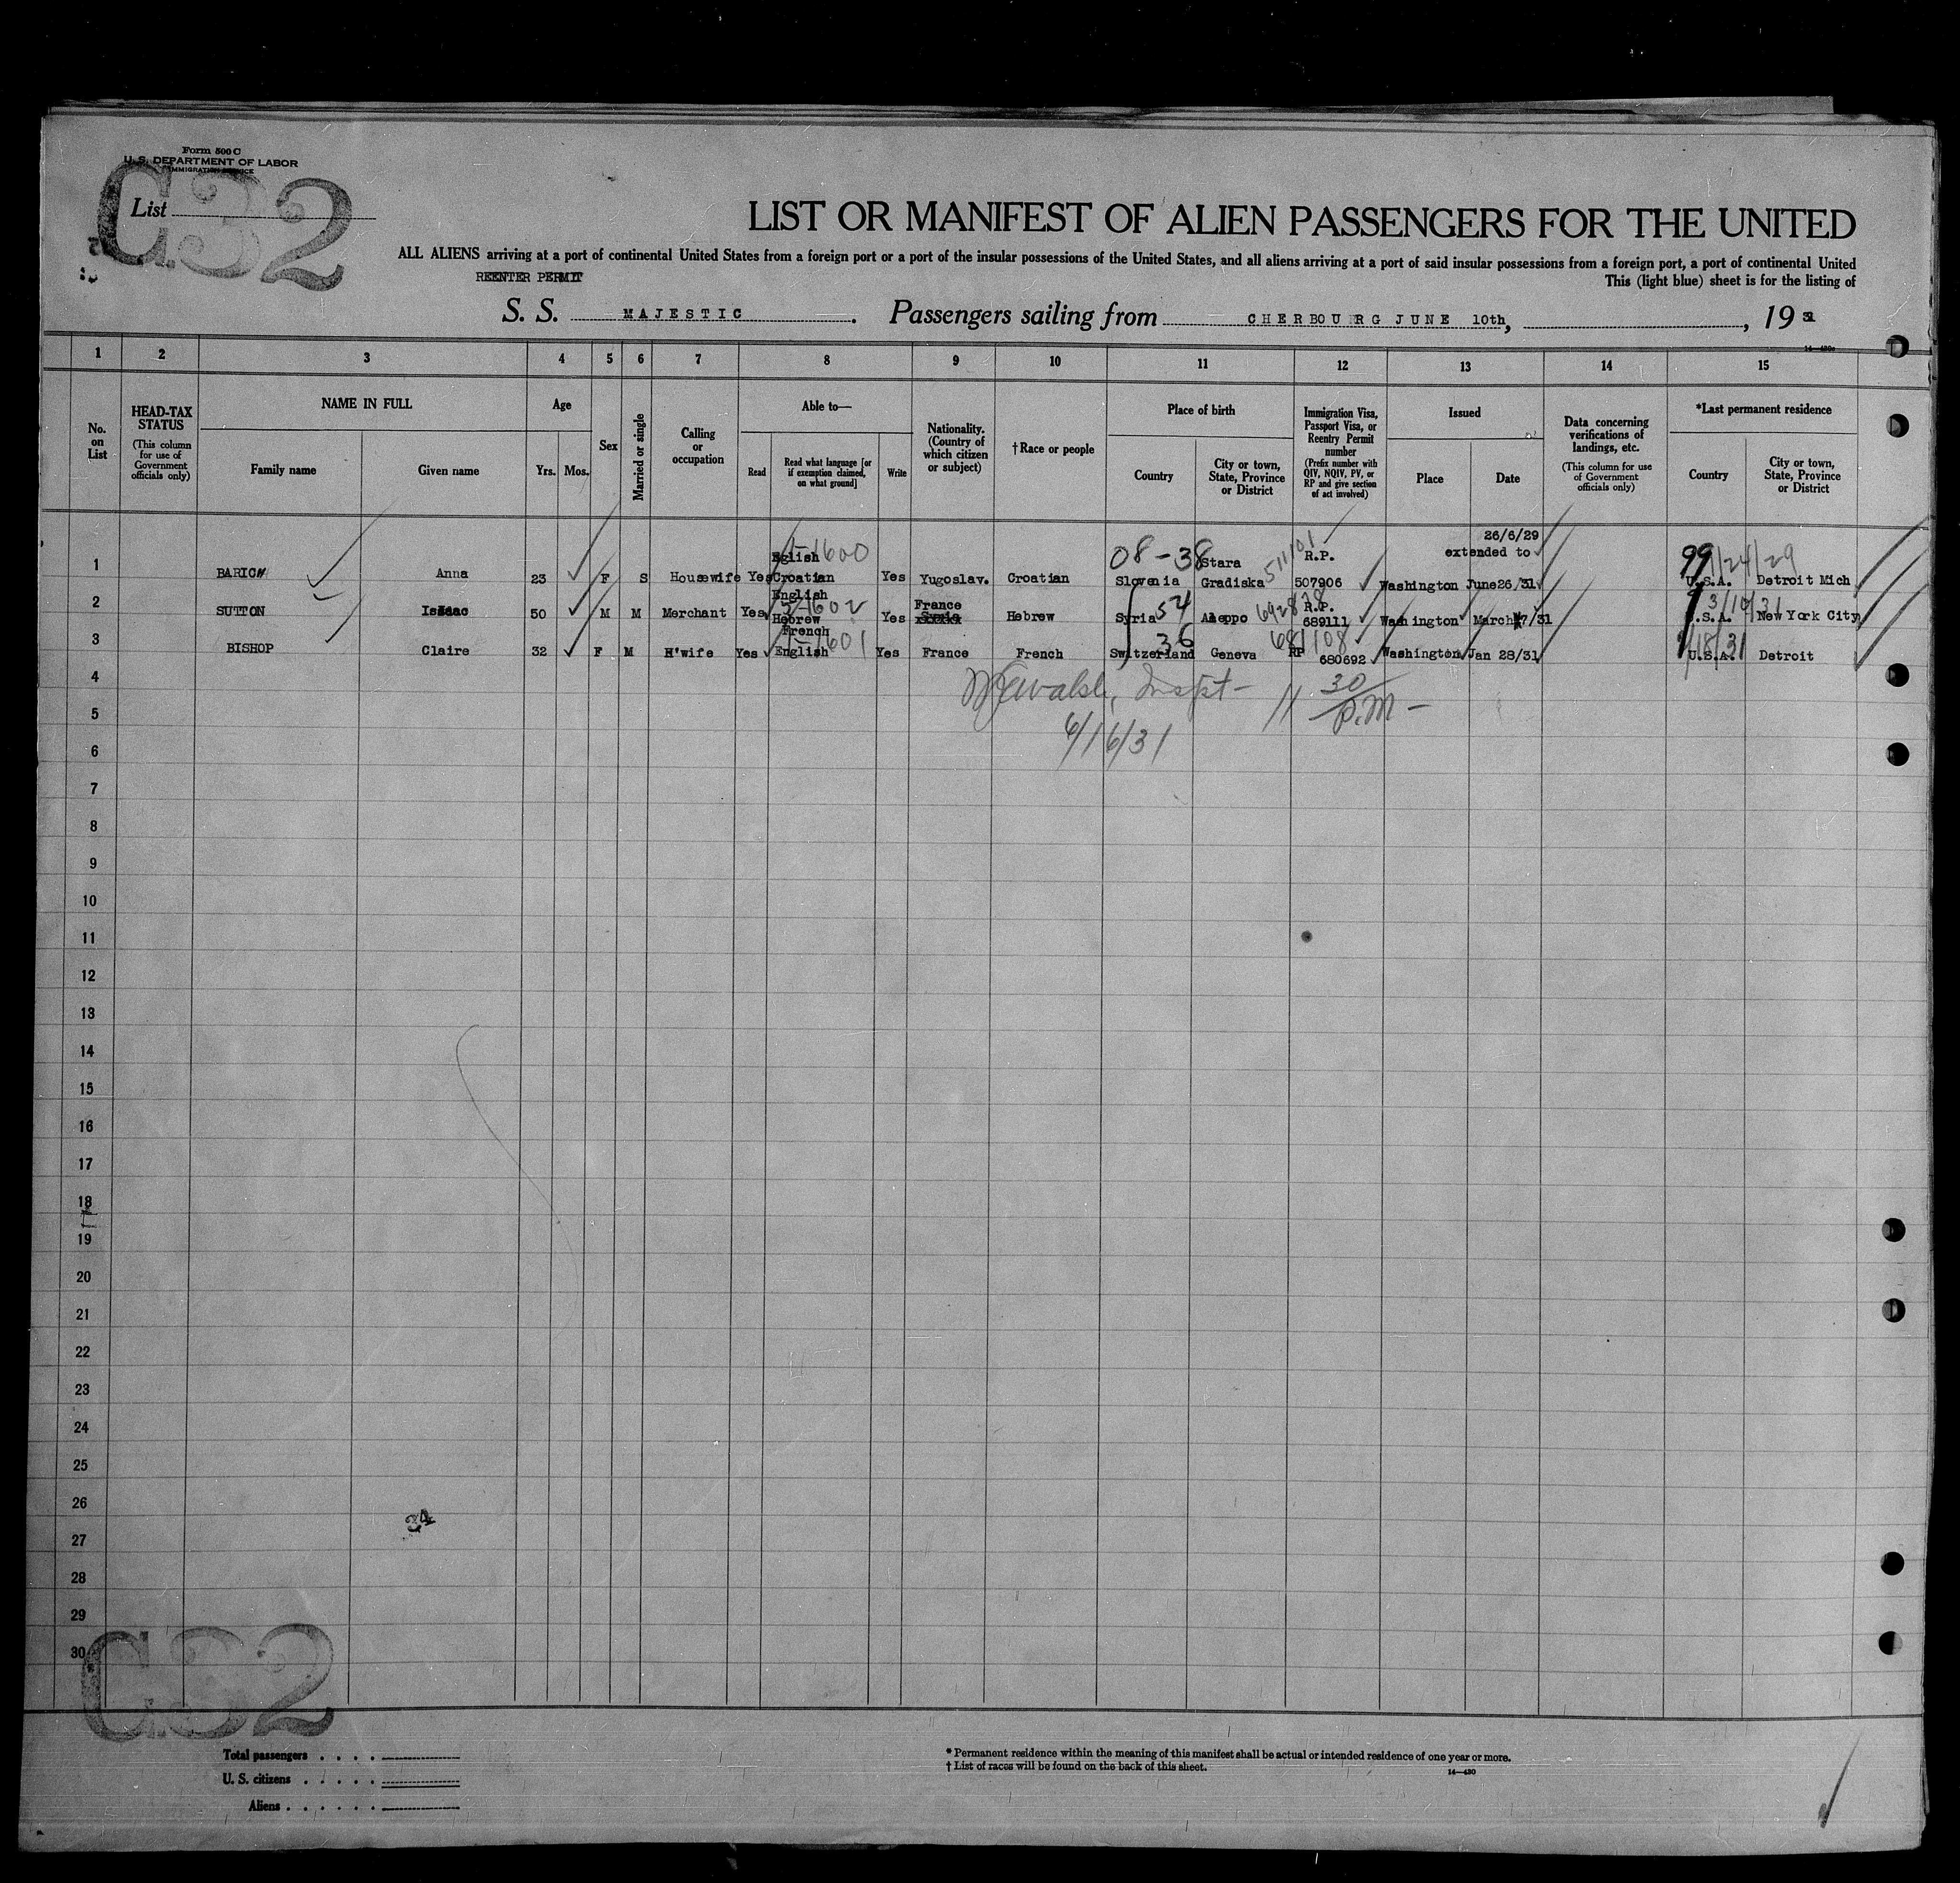 Form 500 C
U. S. DEPARTMENT OF LABOR
IMMIGRATION SERVICE
List
C32
LIST OR MANIFEST OF ALIEN PASSENGERS FOR THE UNITED
ALL ALIENS arriving at a port of continental United States from a foreign port or a port of the insular possessions of the United States, and all aliens arriving at a port of said insular possessions from a foreign port, a port of continental United
REENTER PERMIT
This (light blue) sheet is for the listing of
S. S. MAJESTIC. Passengers sailing from CHERBOURG JUNE 10th, , 1931
14—430
1 2 3 4 5 6 7 8 9 10 11 12 13 14 15
No. on List
HEAD-TAX STATUS (This column for use of Government officials only)
NAME IN FULL
Family name
Given name
Age
Yrs. Mos.
Sex
Married or single
Calling or occupation
Able to—
Read
Read what language [or if exemption claimed, on what ground]
Write
Nationality. (Country of which citizen or subject)
†Race or people
Place of birth
Country
City or town, State, Province or District
Immigration Visa, Passport Visa, or Reentry Permit number (Prefix number with QIV, NQIV, PV, or RP and give section of act involved)
Issued
Place
Date
Data concerning verifications of landings, etc. (This column for use of Government officials only)
*Last permanent residence
Country
City or town, State, Province or District
26/6/29
Eglish 5-1600 08-38 Stara 511101 R.P. extended to 99 1/24/29
1 BARICH Anna 23 F S Housewife Yes Croatian Yes Yugoslav. Croatian Slovenia Gradiska 507906 Washington June26/31 U.S.A. Detroit Mich
English 5-1602 France 54 692878 R.P. 3/10/31
2 SUTTON Isaac 50 M M Merchant Yes Hebrew Yes Syria Hebrew Syria Aleppo 689111 Washington March 7/31 U.S.A. New York City
French 5-1601 36 681108 1/18/31
3 BISHOP Claire 32 F M H'wife Yes English Yes France French Switzerland Geneva RP 680692 Washington Jan 28/31 U.S.A. Detroit
4 Walsh, Inspt- 11 30/P.M-
5 6/16/31
6
7
8
9
10
11
12
13
14
15
16
17
18
19
20
21
22
23
24
25
26
27
28
29
30
34
C32
Total passengers . . . .
U. S. citizens . . . . .
Aliens . . . . . .
* Permanent residence within the meaning of this manifest shall be actual or intended residence of one year or more.
† List of races will be found on the back of this sheet.
14—430